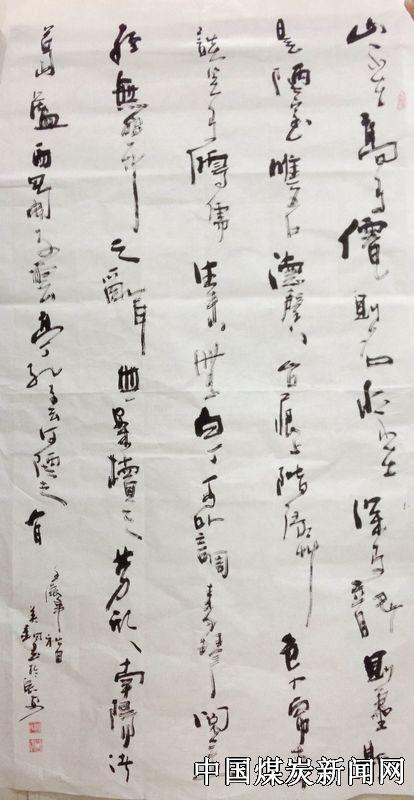 山不在高有僊則名水不在深有龍則靈斯
是陋室唯吾德馨苔痕上階綠艸色入簾青
談笑有鴻儒往來無白丁可以調素琴閱金
經無絲竹之亂耳無案牘之勞形南陽諸
葛廬西蜀子雲亭孔子云何陋之有
中国煤炭新闻网